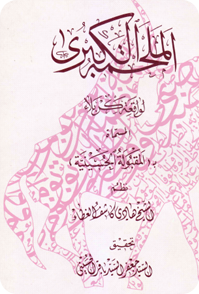 الملحمة الكبرى
لواقعة كربلاء
المسماة
بـ (المقبولة الحسينية)
نظم
الشيخ هادي كاشف الغطاء
تحقيق
السيد جعفر السيد باقر الحسيني